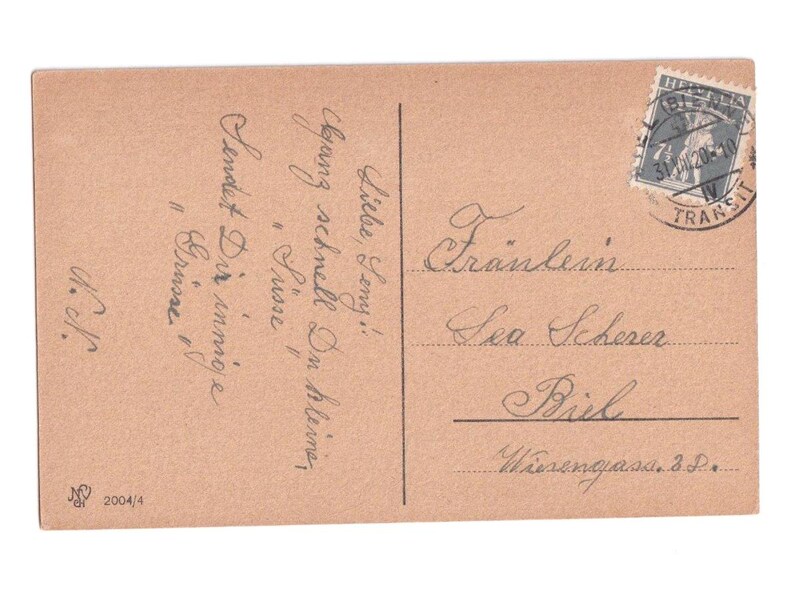 Liebe, Leny!
Ganz schnell Du kleine,
„ Süsse "
Sendet Dir innige
„ Grüsse "
N. N.
HELVETIA
7½
BIEL (BIENNE)
31.VII.20. 10
IV
TRANSIT
Fräulein
Lea Scherer
Biel
Wiesengass. 3 d.
2004/4